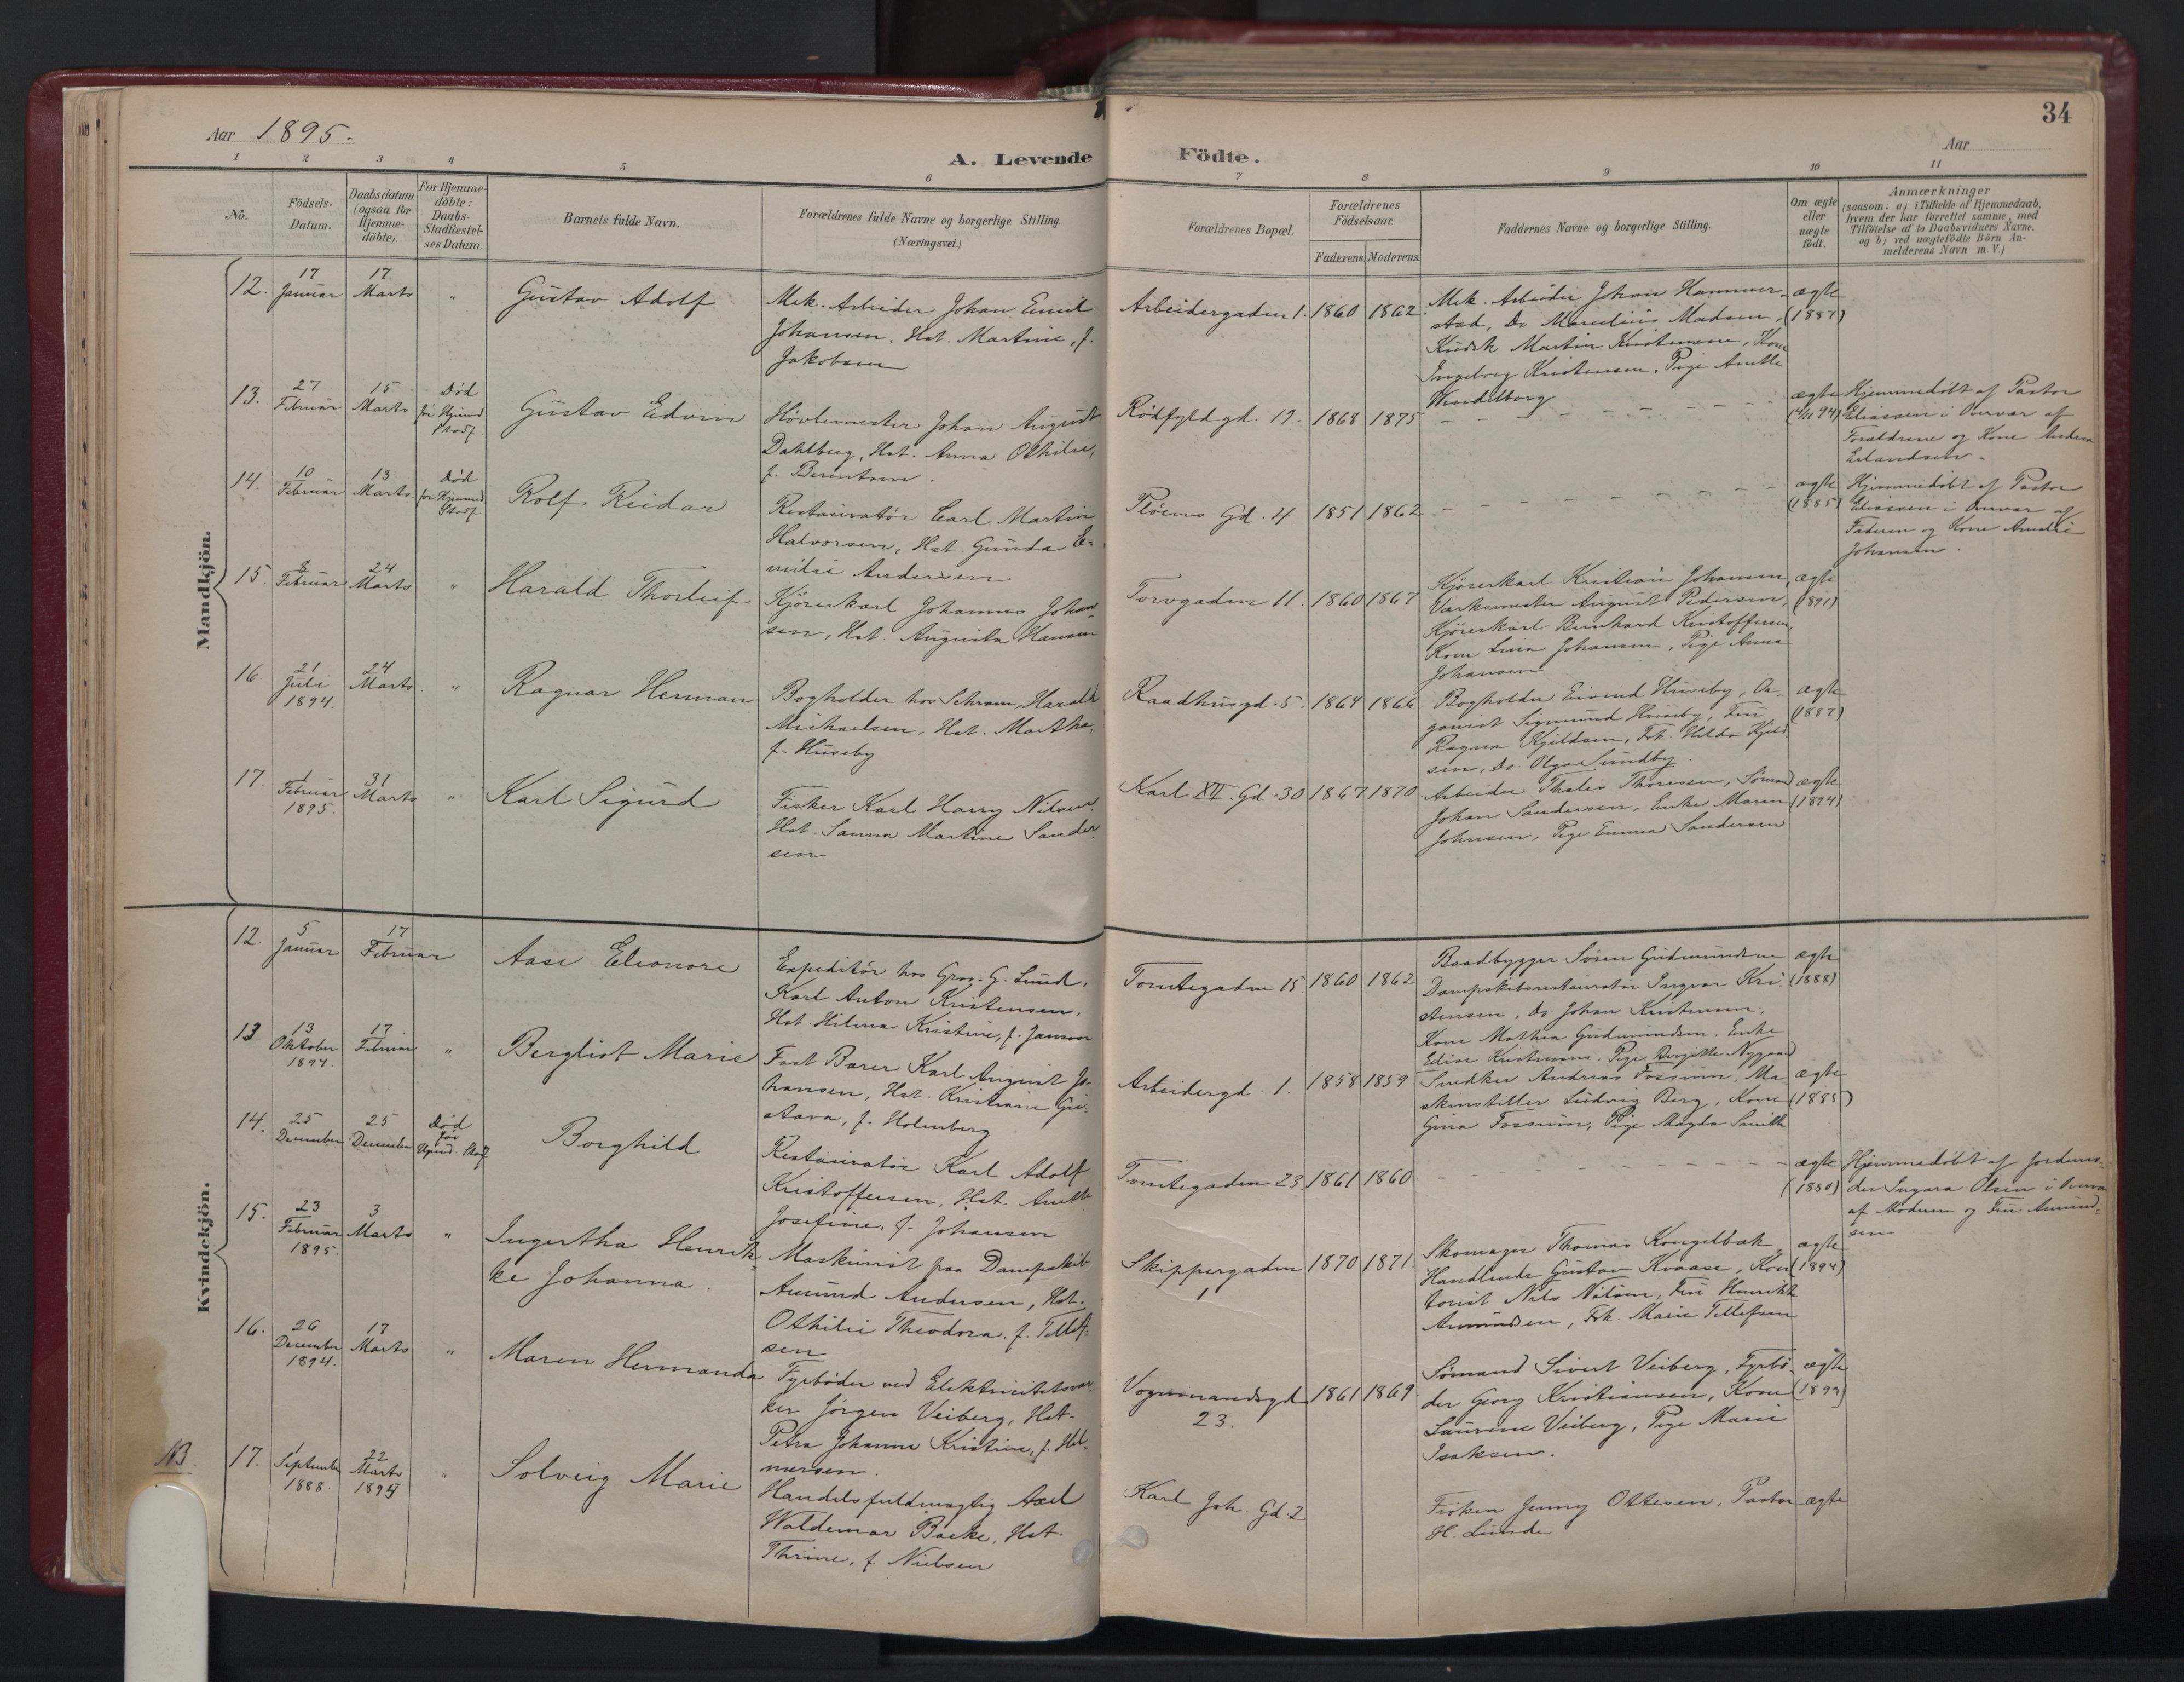 34
Aar 1895.
Aar
A. Levende Födte.
1 2 3 4 5 6 7 8 9 10 11
No.
Födsels-Datum.
Daabsdatum (ogsaa for Hjemme-döbte).
For Hjemme-döbte: Daabs-Stadfæstel-ses Datum.
Barnets fulde Navn.
Forældrenes fulde Navne og borgerlige Stilling.
(Næringsvei.)
Forældrenes Bopæl.
Forældrenes Födselsaar.
Faderens. Moderens.
Faddernes Navne og borgerlige Stilling.
Om ægte eller uægte födt.
Anmærkninger
(saasom: a) i Tilfælde af Hjemmedaab,
hvem der har forrettet samme, med
Tilföielse af to Daabsvidners Navne,
og b) ved uægtefödte Börn An-
melderens Navn m. V.)
Mandkjön.
12. 17 Januar 17 Marts " Gustav Adolf
Mek. Arbeider Johan Emil
Johansen, Hst. Martine, f.
Jakobsen
Arbeidergaden 1. 1860 1862
Mek. Arbeider Johan Hammer-
stad, Do Marelius Madsen,
Kudsk Martin Kristensen, Kone
Ingeborg Kristensen, Pige Anette
Wendelborg
ægte (1887)
13. 27 Februar 15 Marts Död för Hjemd Stadf. Gustav Edvin
Hövlemester Johan August
Dahlberg, Hst. Anna Othilie,
f. Berntsen.
Rödfyldgd. 17. 1868 1875
- - - - - - - -
ægte
Hjemmedöbt af Pastor
Eliassen i Overvær af
Forældrene og Kone Andrea
Erlandsen.
14. 10 Februar 13 Marts Död för Hjemmed Stadf. Rolf Reidar
Restauratör Carl Martin
Halvorsen, Hst. Gunda E-
milie Andersen
Plöens Gd. 4. 1851 1862
- - - - - - - -
ægte (1885)
Hjemmedöbt af Pastor
Eliassen i Overvær af
Faderen og Kone Amalie
Johansen.
15. 8 Februar 24 Marts " Harald Thorleif
Kjörerkarl Johannes Johan-
sen, Hst. Augusta Hansen
Torvgaden 11. 1860 1867
Kjörerkarl Kristian Johansen,
Værksmester August Pedersen,
Kjörerkarl Bernhard Kristoffersen,
Kone Lina Johansen, Pige Anna
Johansen
ægte (1891)
16. 21 Juli 1894. 24 Marts " Ragnar Herman
Bogholder hos Schram, Harald
Michaelsen, Hst. Martha,
f. Huseby
Raadhusgd. 5. 1864 1866
Bogholder Eivind Huseby, Or-
ganist Sigmund Huseby, Fru
Ragna Kjeldsen, Frk. Hilda Kjeld-
sen, Do. Olga Sundby.
ægte (1887)
17. 1 Februar 1895. 31 Marts " Karl Sigurd
Fisker Karl Harry Nilsen
Hst. Sanna Martine Sander-
sen
Karl XII. Gd. 30 1867 1870
Arbeider Thales Thoresen, Sömand
Johan Sandersen, Enke Maren
Johnsen, Pige Emma Sandersen
ægte (1894)
Kvindekjön.
12. 5 Januar 17 Februar Aase Eleonore
Expeditör hos Gros. G. Lund,
Karl Anton Kristensen,
Hst. Hilma Kristine, f. Janson
Tomtegaden 15 1860 1862
Baadbygger Sören Gudmundsen
Dampskibsrestauratör Ingvar Kri-
stensen, Do Johan Kristensen,
Kone Mathea Gudmundsen, Enke
Elise Kristensen, Pige Birgitte Nygaard
ægte (1888)
13 13 Oktober 1894. 17 Februar " Bergliot Marie
Fast Bærer Karl August Jo-
hansen, Hst. Kristiane Gu-
stava, f. Holmberg
Arbeidergd. 1. 1858 1859
Snedker Andreas Fossum, Ma-
skinstiller Ludvig Berg, Kone
Gina Fossum, Pige Magda Smith
ægte (1885)
14. 25 December 25 December Död för Hjemd. Stadf Borghild
Restauratör Karl Adolf
Kristoffersen, Hst. Anette
Josefine, f. Johansen
Tomtegaden 23 1861 1860
- - - - - - - -
ægte (1880)
Hjemmedöbt af Jordemo-
der Ingara Olsen i Overvær
af Moderen og Fru Amund-
sen
15. 23 Februar 1895. 3 Marts " Ingertha Henrik-
ke Johanna.
Maskinist paa Dampskib
Amund Andersen, Hst.
Othilie Theodora, f. Tellef-
sen
Skippergaden 1 1870 1871
Skomager Thomas Kongelbak,
Handlende Gustav Kvaase, Kon-
torist Nils Nilsen, Fru Henrikke
Amundsen, Frk. Marie Tellefsen
ægte (1894)
16. 26 December 1894. 17 Marts " Maren Hermanda
Fyrböder ved Elektricitetsvær-
ker Jörgen Veiberg, Hst.
Petra Johanne Kristine, f. Hel-
mersen.
Vognmandsgd. 23. 1861 1869
Sömand Sivert Veiberg, Fyrbö-
der Georg Kristiansen, Kone
Laurine Veiberg, Pige Marie
Isaksen.
ægte
NB. 17. 1 September 1888 22 Marts 1895 " Solveig Marie
Handelsfuldmægtig Axel
Waldemar Backe, Hst.
Thrine, f. Nielsen
Karl Joh. Gd. 2
Fröken Jenny Ottesen, Pastor
H. Lunde
ægte